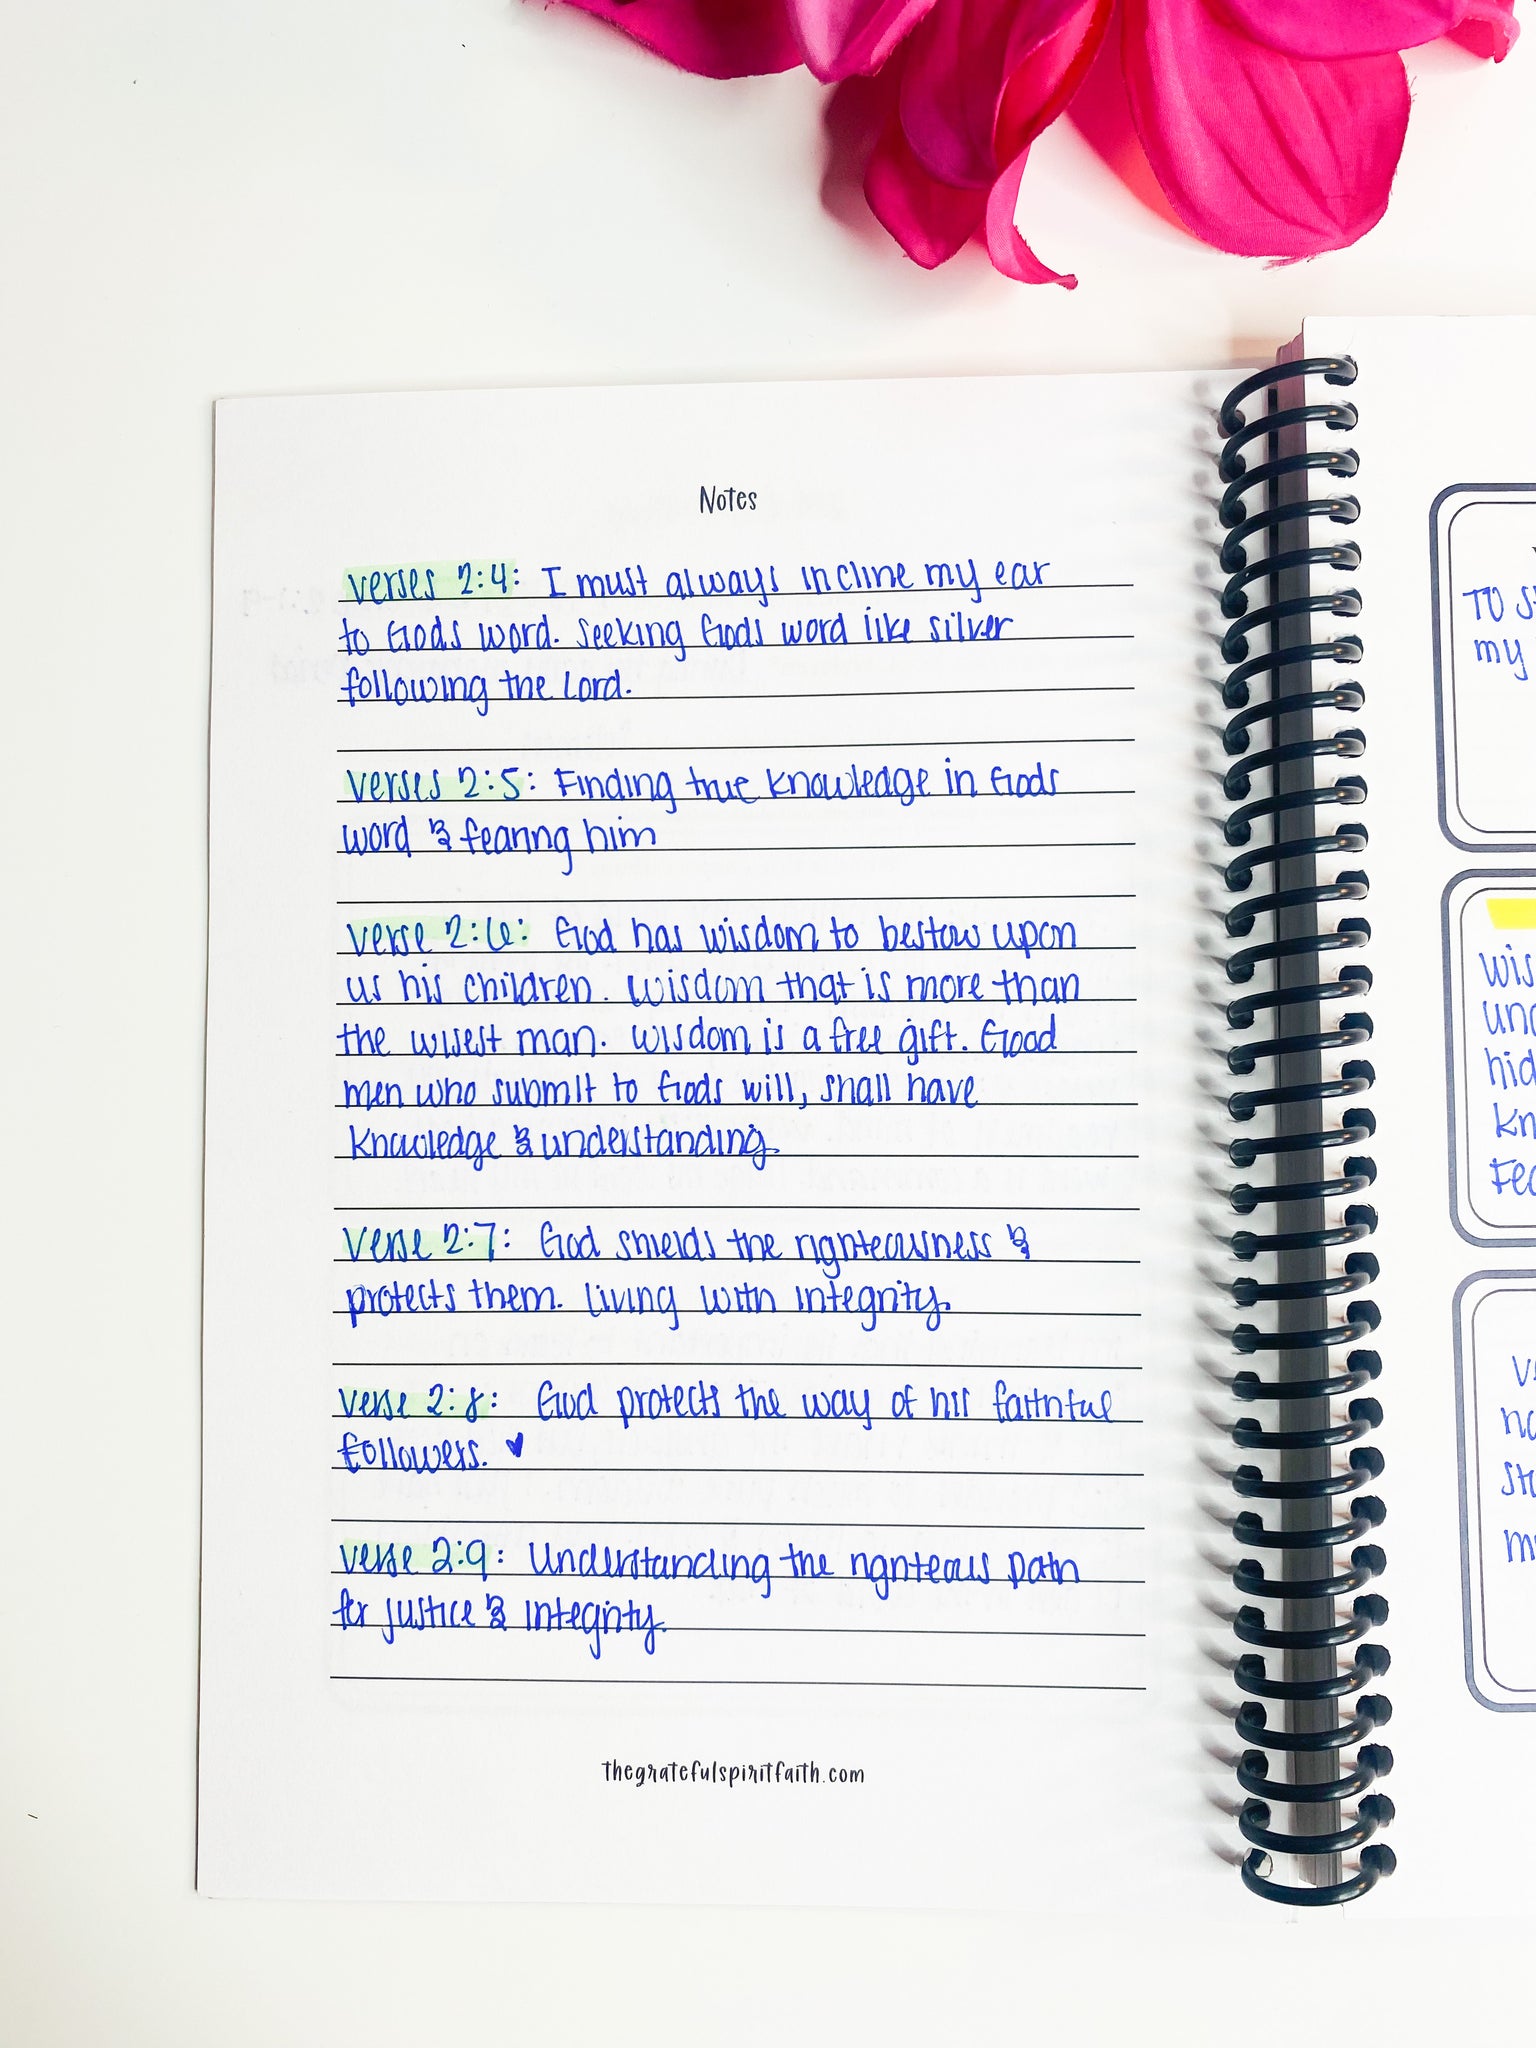 Notes
verses 2:4: I must always incline my ear
to Gods word. Seeking Gods word like silver
following the Lord.
verses 2:5: Finding true knowledge in Gods
word & fearing him
verse 2:6: God has wisdom to bestow upon
us his children. Wisdom that is more than
the wisest man. Wisdom is a free gift. Good
men who submit to Gods will, shall have
knowledge & understanding.
verse 2:7: God shields the righteousness &
protects them. Living with integrity.
verse 2:8: God protects the way of his faithful
followers. ♥
verse 2:9: Understanding the righteous path
for justice & integrity.
thegratefulspiritfaith.com
To
my